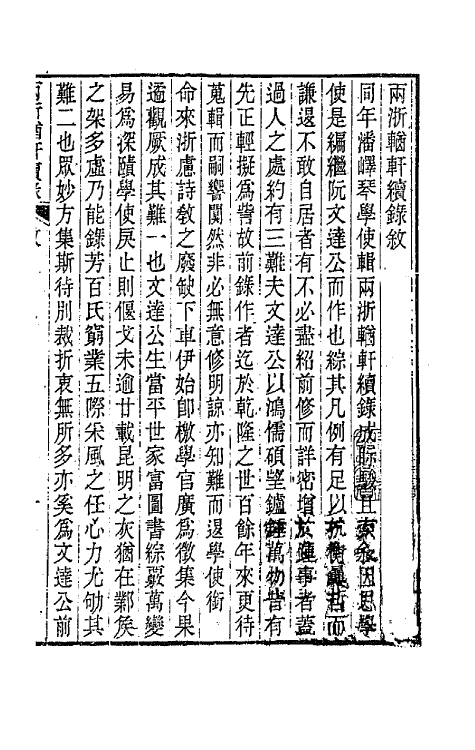 兩浙輶軒續錄敘
同年潘嶧琴學使輯兩浙輶軒續錄成貽書且索永因思學
使是編繼阮文達公而作也綜其凡例有足以抗衡曩哲而
謙退不敢自居者有不必盡紹前修而詳密增於曩事者蓋
過人之處約有三難夫文達公以鴻儒碩望鑪錘萬物皆有
先正輕擬為訾故前錄作者迄於乾隆之世百餘年來更待
蒐輯而嗣響闃然非必無意修明諒亦知難而退學使銜
命來浙慮詩敎之廢缺下車伊始卽檄學官廣為徵集今果
遹觀厥成其難一也文達公生當平世家富圖書綜覈萬變
易為深賾學使戾止則偃戈未逾廿載昆明之灰猶在鄴矦
之架多虛乃能錄芳百氏窮業五際采風之任心力尤劬其
難二也眾妙方集斯待別裁折衷無所多亦奚為文達公前
兩浙輶軒續錄 敘